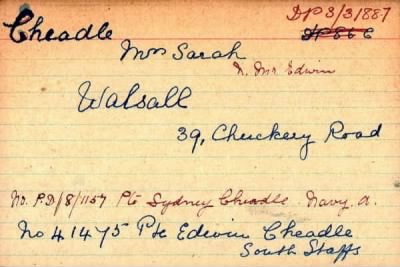 Cheadle
DP3/3/1887
DP866
Mrs Sarah
D. Mr Edwin
Walsall
39, Chuckery Road
No. P.D/8/1157 Pte Sydney Cheadle. Navy. a.
No 41475 Pte Edwin Cheadle
South Staffs